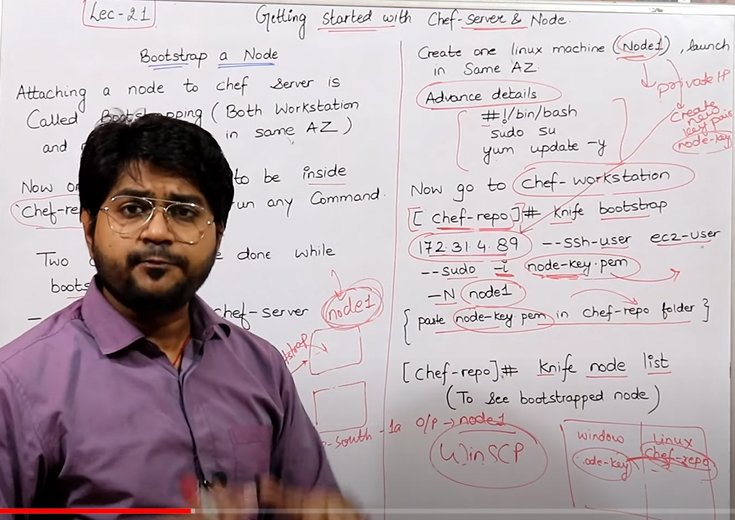 Lec-21
Getting started with Chef-server & Node.
Bootstrap a Node
Attaching a node to chef server is
Called Bootstrapping (Both Workstation
and in same AZ)
Now to be inside
'Chef-re run any Command.
Two done while
boots
- chef-server
node1
-south-1a
Create one linux machine (Node1), launch
in Same AZ.
private IP
Advance details
Create
new
key pair
node-key
#!/bin/bash
sudo su
yum update -y
Now go to Chef-workstation
[chef-repo]# knife bootstrap
172.31.4.89 --ssh-user ec2-user
--sudo -i node-key.pem
-N node1
{ paste node-key.pem in chef-repo folder }
[chef-repo]# knife node list
(To see bootstrapped node)
O/P → node1
WinSCP
window Linux
node-key chef-repo